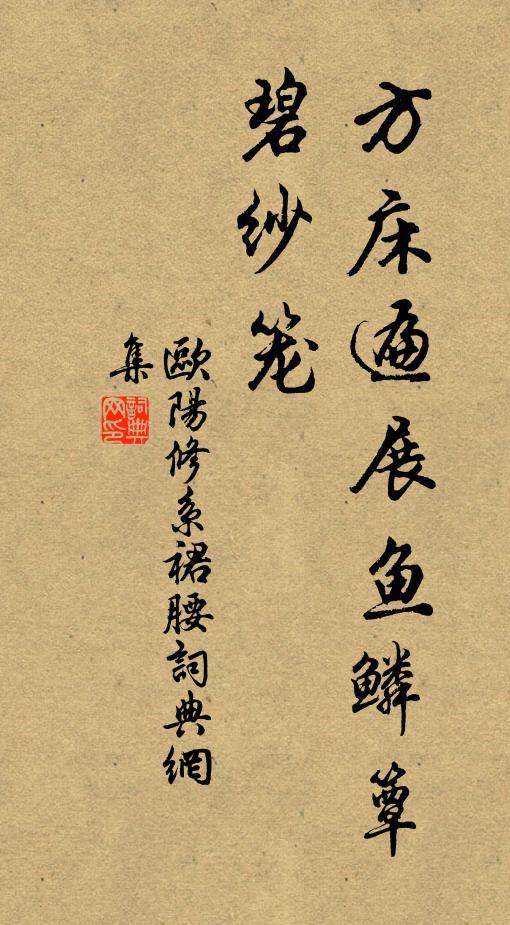 方床遍展鱼鳞簟
碧纱笼
歐陽修系裙腰詞典網
集
詞典網印